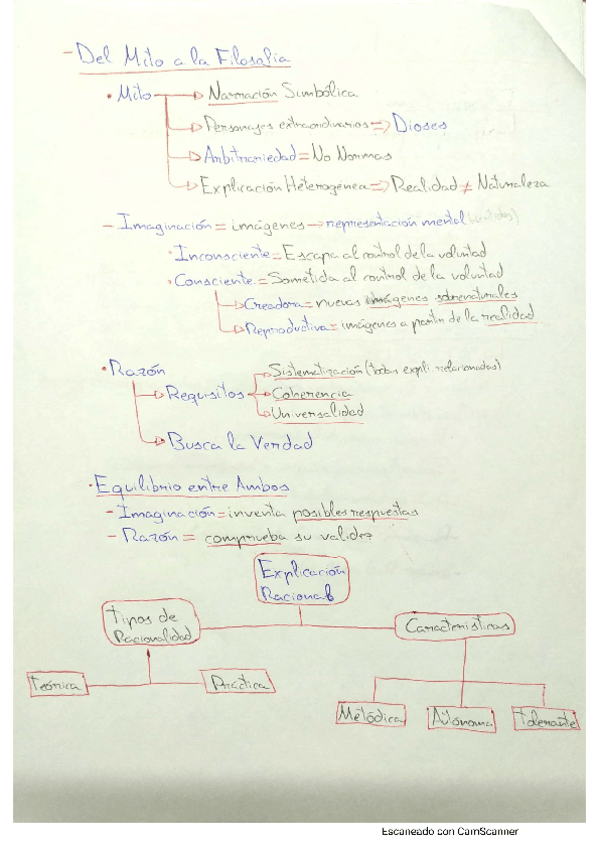 - Del Mito a la Filosofía
• Mito → Narración Simbólica
→ Personajes extraordinarios ⇒ Dioses
→ Arbitrariedad = No Normas
→ Explicación Heterogénea ⇒ Realidad ≠ Naturaleza
- Imaginación = imágenes → representación mental
• Inconsciente = Escapa al control de la voluntad
• Consciente = Sometida al control de la voluntad
→ Creadora = nuevas imágenes sobrenaturales
→ Reproductiva = imágenes a partir de la realidad
• Razón
→ Requisitos → Sistematización (todas expli. relacionadas)
→ Coherencia
→ Universalidad
→ Busca la Verdad
• Equilibrio entre Ambos
- Imaginación = inventa posibles respuestas
- Razón = comprueba su validez
Explicación
Racional
Tipos de
Racionalidad
Características
Teórica
Práctica
Metódica
Autónoma
Tolerante
Escaneado con CamScanner